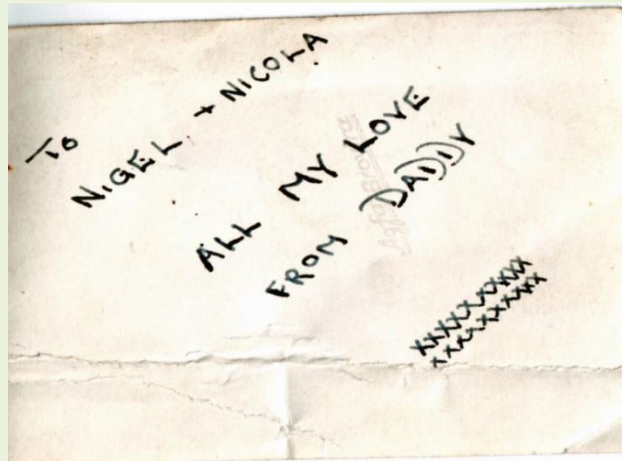 To
NIGEL + NICOLA
ALL MY LOVE
FROM DADDY
XXXXXXXXXX
XXXXXXXXXX